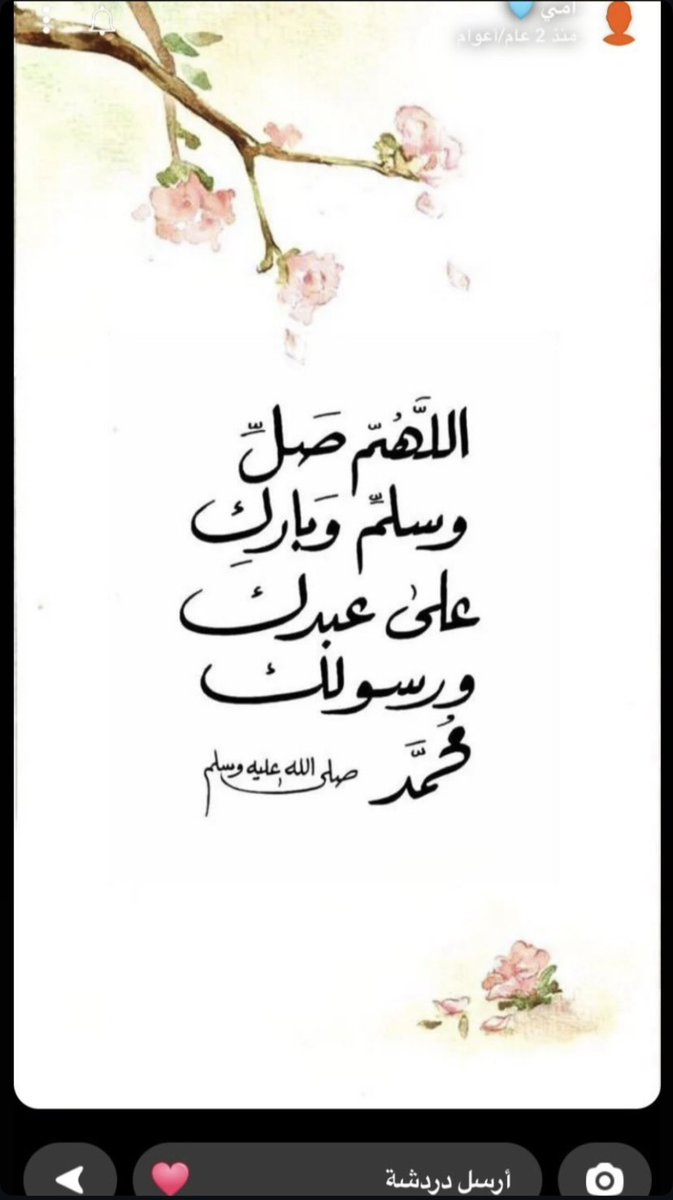 امي 🩵
منذ 2 عام/أعوام
اللَّهُمّ صَلِّ
وسلمِّ وَباركِ
على عبدك
ورسولك
مُحمَّد صلى الله عليه وسلم
أرسل دردشة